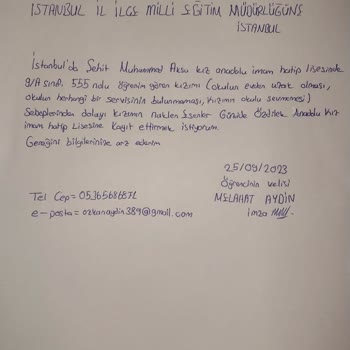 İSTANBUL İL İLGE MİLLİ EĞİTİM MÜDÜRLÜĞÜNE
İSTANBUL
İstanbul'da Şehit Muhammed Aksu kız anadolu imam hatip Lisesinde
9/A sınıfı 555 nolu öğrenim gören kızımı (okulun evden uzak olması,
okulun herhangi bir servisinin bulunmaması, kızımın okulu sevmemesi)
Sebeplerinden dolayı kızımın naklen Esenler Gönülde Özdilek Anadolu Kız
imam hatip Lisesine Kayıt ettirmek istiyorum.
Gereğini bilgilerinize arz ederim
25/09/2023
Öğrencinin velisi
MELAHAT AYDIN
imza
Tel Cep= 05365686871
e-posta= ozkanaydin389@gmail.com